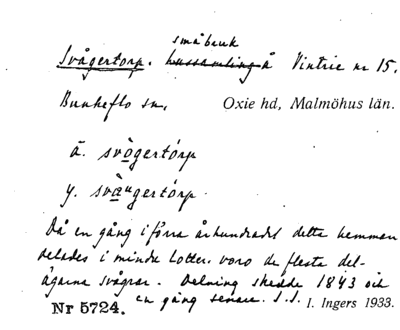 småbruk
Svågertorp. hussamling å Vintrie nr 15.
Bunkeflo sn. Oxie hd, Malmöhus län.
ä. svògertórp
y. svàugertórp
Då en gång i förra århundradet detta hemman
delades i mindre lotter. voro de flesta del-
ägarna svågrar. Delning skedde 1843 och
en gång senare. I.I. I. Ingers 1933.
Nr 5724.